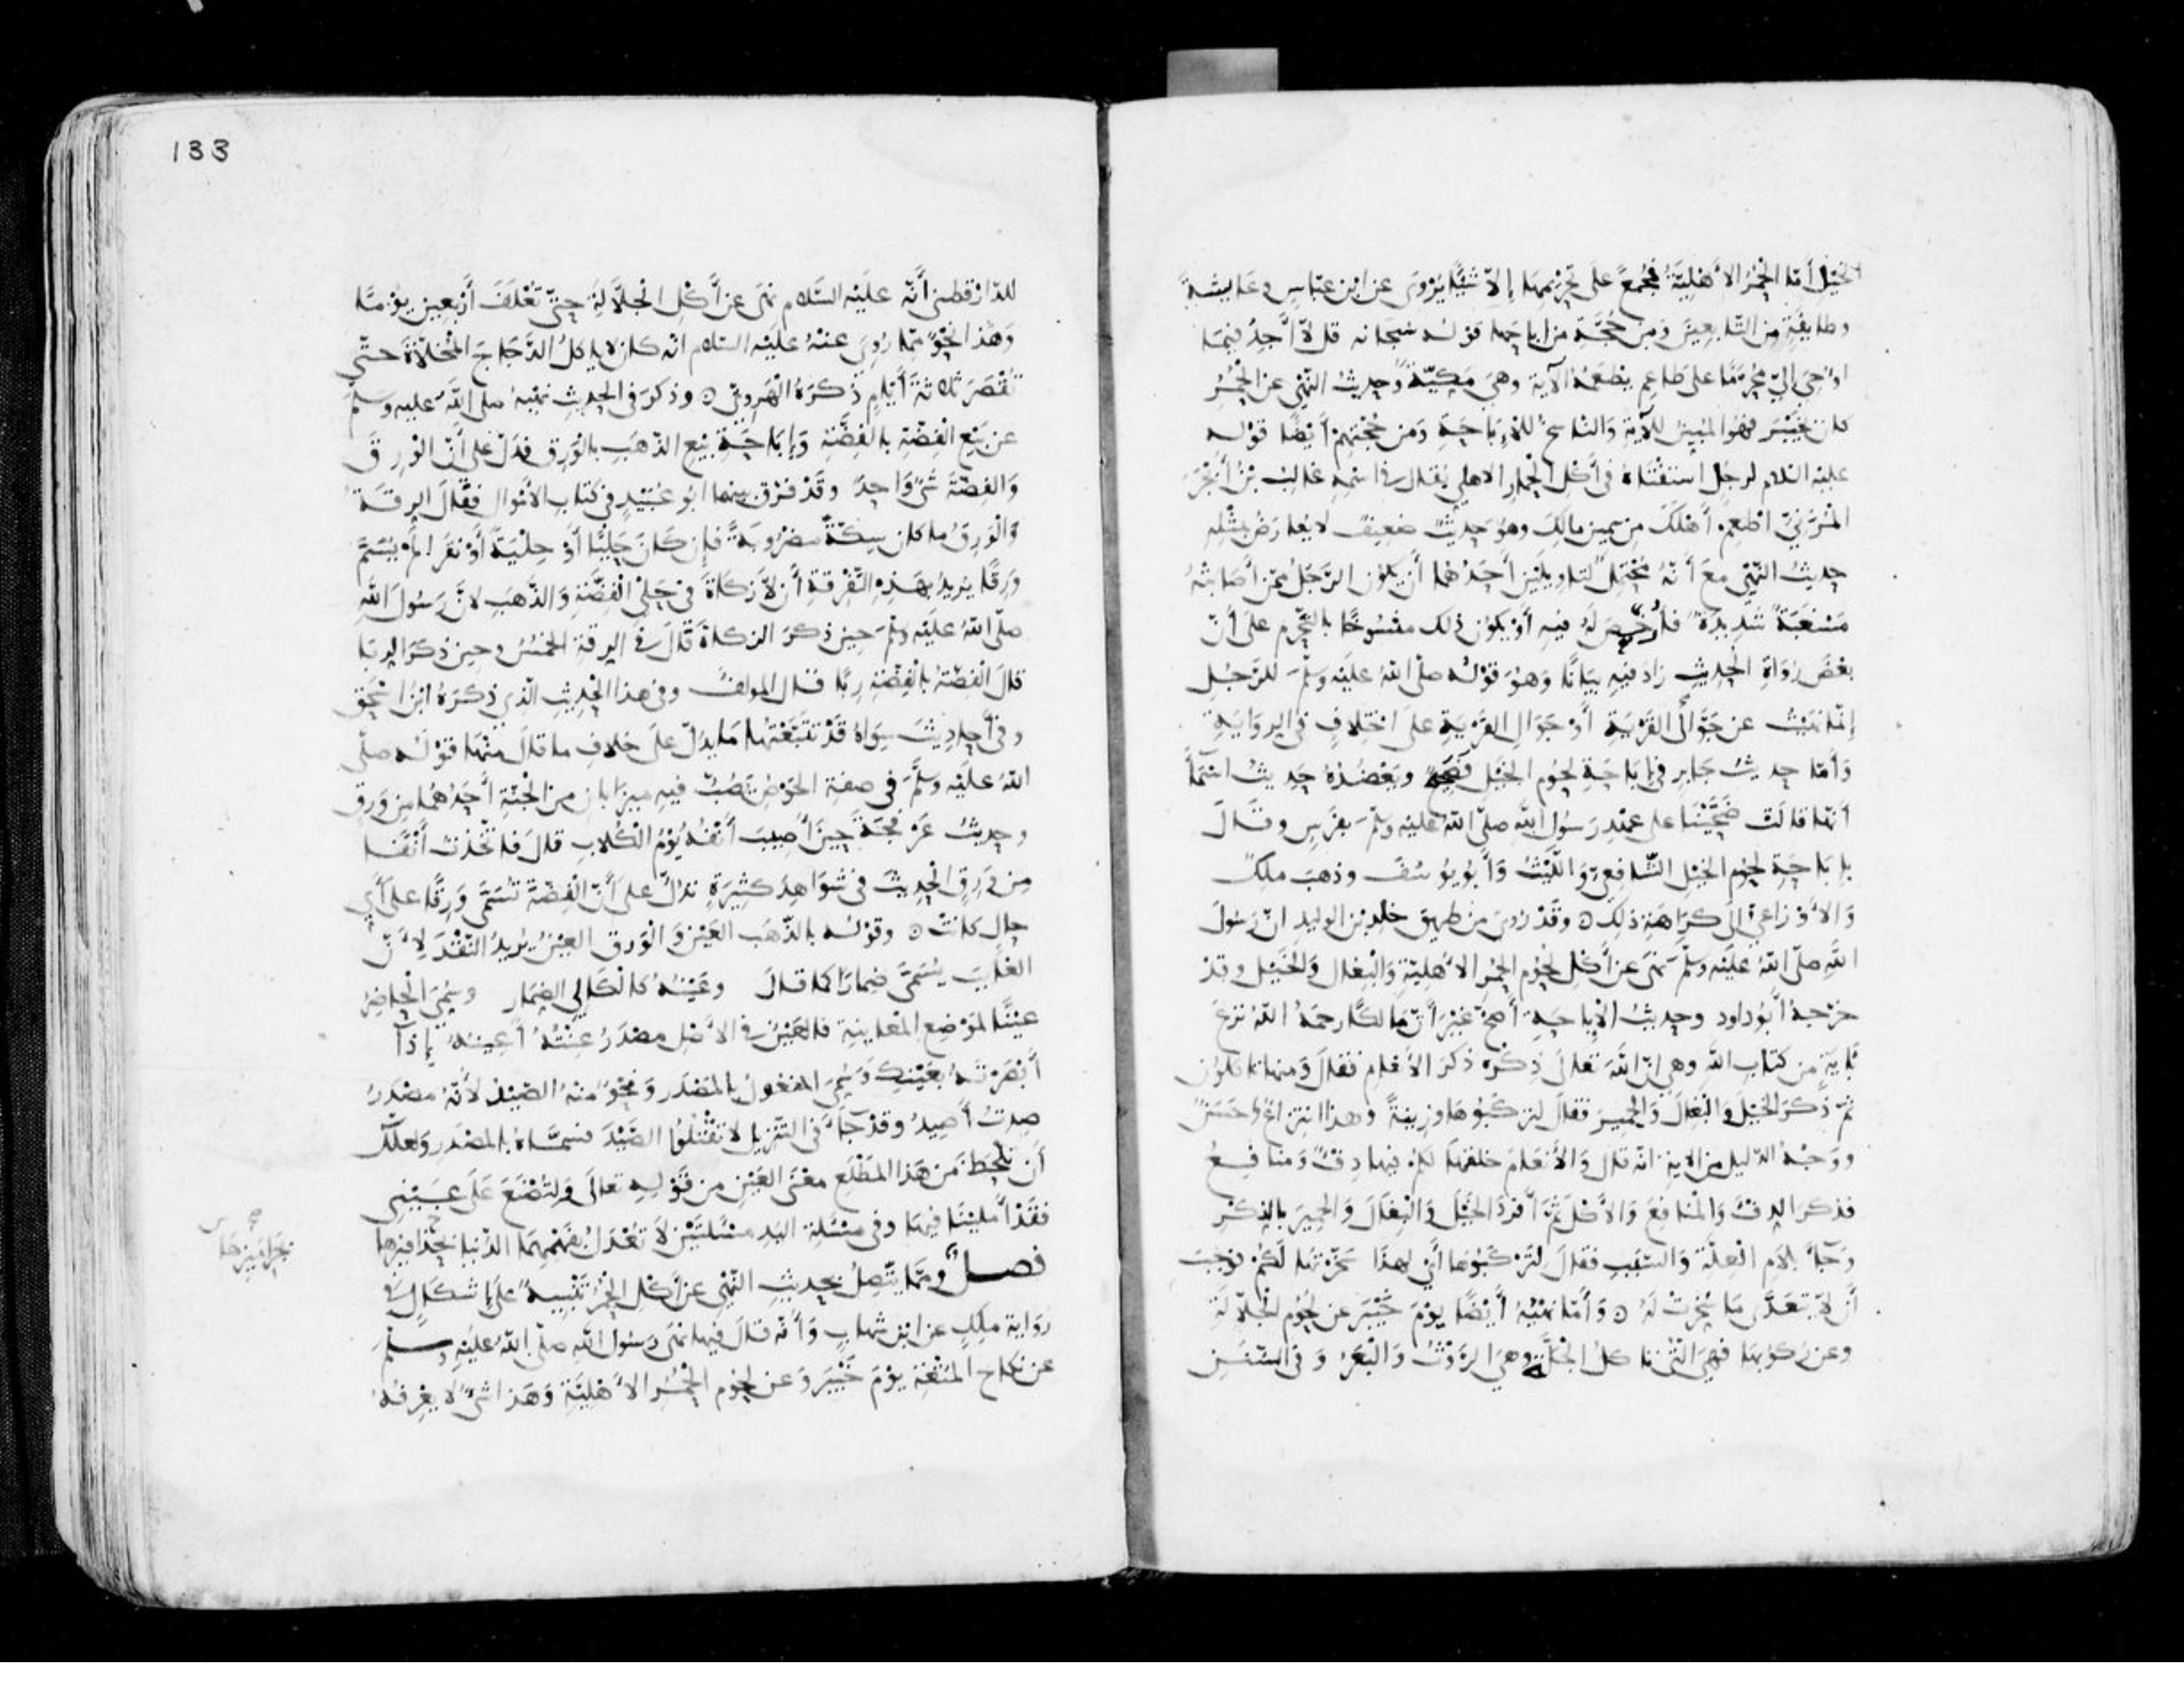 الخيل أمّا الحُمُرُ الأهليّةُ فمُجمعٌ على تحريمها إلّا شيئًا يُروى عن ابن عباس وعايشةَ
وطايفةٍ من التابعين ومن حُجّةِ من اباحها قولُه سبحانه قل لا أجدُ فيما
اوحي إليّ مُحرّمًا على طاعم يطعمُه الآية وهي مَكيّةٌ وحديثُ النّهي عن الحُمُرِ
كان بخَيْبَر فهو المُبيّنُ للآية والناسخُ للإباحةِ ومن حُجّتهم أيضًا قوله
عليه السلام لرجل استفتاهُ في أكل الحمار الاهلي يُقال في اسمه غالبُ بنُ أبْجَرَ
المُزَنيّ اطعِمْ أهلكَ من سمين مالكَ وهو حديثٌ ضعيفٌ لا يُعارضُ بمثله
حديثُ النّهي معَ أنّهُ محتملٌ لتاويلَيْن أحدُهما أن يكون الرّجلُ ممّن أصَابتْهُ
مَسْغَبةٌ شديدةٌ فأُرخّصَ لَهُ فيه أوْ يكون ذلك منسُوخًا بالتحريم على أنّ
بعْضَ رُوَاةِ الحديثِ زاد فيه بيَانًا وهُوَ قوْلُه صلى اللهُ عليْه وسلّم للرّجُلِ
إنّما نَهَيْتُ عن جَوّالَى القَرْيَةِ أوْ جَوَالِ القَرْيةِ على اختلافٍ في الروايةِ
وأمّا حديثُ جابر في إباحةِ لحُوم الخيْلِ فصحيحٌ ويَعْضُدُهُ حَديثُ اسْمآءَ
أنّها قالتْ ضَحّيْنا على عهْدِ رسُول الله صلى اللهُ عليه وسلّم بفرَسٍ وقالَ
بإباحةِ لحُوم الخيْل الشّافعيّ واللّيْثُ وأبُو يُوسُفَ وذهبَ ملكٌ
والأوْزاعيّ إلى كراهَةِ ذلكَ ٥ وقَدْ رُوي من طريق خلد بن الوليدِ انّ رسُولَ
الله صلّى اللهُ عليْه وسلّم نهَى عن أكْلِ لحُوم الحُمُر الأهْليّة والبِغالِ والخَيْل وقدْ
خرّجهُ أبُو داود وحديثُ الإباحةِ أصحّ غيرَ أنّ مالكًا رحمهُ اللهُ نزعَ
بآيةٍ من كتابِ اللهِ وهي انّ اللهَ تعالَى ذِكْرُه ذكرَ الأنعامَ فقالَ ومنها تاكلون
ثمّ ذكرَ الخيْلَ والبِغالَ والحميرَ فقالَ لتركَبُوهَا وزينةً وهذا انتزاعٌ حَسَنٌ
ووَجْهُ الدّليل من الاية انّه قال والأنعَامَ خلقَها لكُم فيها دفءٌ ومنافعُ
فذكر الدفءَ والمنافعَ والأكْلَ ثمّ أفْردَ الخَيْلَ والبِغَالَ والحميرَ بالذّكْرِ
وجآءَ بلام العِلّةِ والسّبَبِ فقالَ لترْكَبُوها أيْ لهذَا سَخّرْتُها لَكُمْ فوجبَ
أنْ لا يُتعَدَّى مَا سُخّرَتْ لهُ ٥ وأمّا نهيُهُ أيْضًا يوْمَ خَيْبَرَ عن لحُوم الجلّالَةِ
وعن رُكُوبها فهي التي تاكلُ الجَلَّةَ وهيَ الرّوْثُ والبَعَرُ وفي السُّنَنِ
133
للدّارقطني أنّه عليْه السّلام نهَى عن أكْلِ الجلّالَةِ حتّى تُعْلَفَ أرْبعين يوْمًا
وهذا نحْوٌ ممّا رُوي عنْهُ عليْه السلام انّه كان لا ياكلُ الدّجَاجَ المُخلّاةَ حتّى
تُقْصَرَ ثلاثةَ أيّامٍ ذكرَهُ الهَرويّ ٥ وذكرَ في الحديثِ نهيَهُ صلى اللهُ عليه وسلّم
عن بَيْع الفِضّةِ بالفِضّةِ وإباحةِ بَيْع الذّهَبِ بالوَرِق فدَلّ علَى أنّ الوَرِقَ
والفِضّةَ شَيْءٌ واحِدٌ وقَدْ فرّق بينهما ابو عُبَيْدٍ في كتاب الأمْوال فقَالَ الرِّقَةُ
والْوَرِقُ ما كان سِكّةً مضْرُوبةً فإن كانَ حَلْيًا أوْ حِلْيَةً أوْ نقَرًا لم يُسَمّ
وَرِقًا يريدُ بهذه التّفْرقةِ أن لا زكاةَ في حَلْي الفِضّةِ والذّهَبِ لانَّ رَسُولَ الله
صلّى اللهُ عليْه وسلّم حينَ ذكرَ الزكاةَ قالَ في الرِقَةِ الخمْسُ وحينَ ذكرَ الرّبَا
قالَ الفضّةُ بالفِضّةِ رِبًا قال المولفُ وفي هذا الحديثِ الّذي ذكرَهُ ابنُ إسْحق
وفي أحاديثَ سِوَاهُ قَدْ تتَبّعْتُها مَا يدُلّ علَى خلافِ ما قالَ منْها قوْلُه صلّى
اللهُ عليْه وسلّمَ في صفةِ الحَوْضِ يَصُبّ فيه ميزابان من الجَنّةِ أحدُهُما من وَرِقٍ
وحديثُ عَرْفَجَةَ حينَ أُصيبَ أنْفُهُ يوْمَ الكُلابِ قالَ فاتّخذتُ أنْفًا
من وَرِقٍ الحديثَ في شوَاهدَ كثيرَةٍ تدُلّ علَى أنّ الفِضّةَ تُسَمّى وَرِقًا علَى أيّ
حالٍ كانتْ ٥ وقوْلُه بالذّهَب العَيْن والوَرِق العيْنِ يُريدُ النّقْدَ لأنّ
الغايبَ يُسَمّى ضِمارًا كما قالَ وعَيْنُهُ كالكالي الضِمَارِ وسُمّيَ الحاضرُ
عيْنًا لمَوْضِع المُعاينةِ فالعَيْنُ في الأصْلِ مصْدَرُ عِنْتُهُ أعِينهُ إذآ
أبْصَرْتَهُ بعَيْنِكَ وسُمّيَ المفعولُ بالمَصْدر ونحْوٌ منهُ الصّيْدُ لأنّهُ مصْدَرُ
صِدتُ أصِيدُ وقدْ جآءَ في التّنْزيل لا تقتُلُوا الصّيْدَ فسمّاهُ بالمصْدَرِ ولعلّكَ
أن تلْحَظَ من هَذا المَطْلَع معْنَى العَيْن من قَوْلِه تعالَى ولتُصْنَعَ عَلَى عَيْنِي
فقَدْ أمْليْنا فيها وفي مسْئلةِ اليَدِ مسْئلتَيْن لا تَعْدلُ بقيمتِهمَا الدّنْيا بحذافيرها
بجراميزها
فصل وممّا يتّصِلُ بحديثِ النّهي عن أكْلِ الحُمُر تنْبيهٌ علَى إشكَالٍ في
روَاية ملكٍ عن ابن شهابٍ وأنّه قالَ فيها نهَى رسُول الله صلّى اللهُ عليْه وسلّمَ
عن نكاح المُتْعَة يوْمَ خَيْبَرَ وعن لحُوم الحُمُر الأهْليّةِ وهَذا شَيْءٌ لا يعْرفُهُ